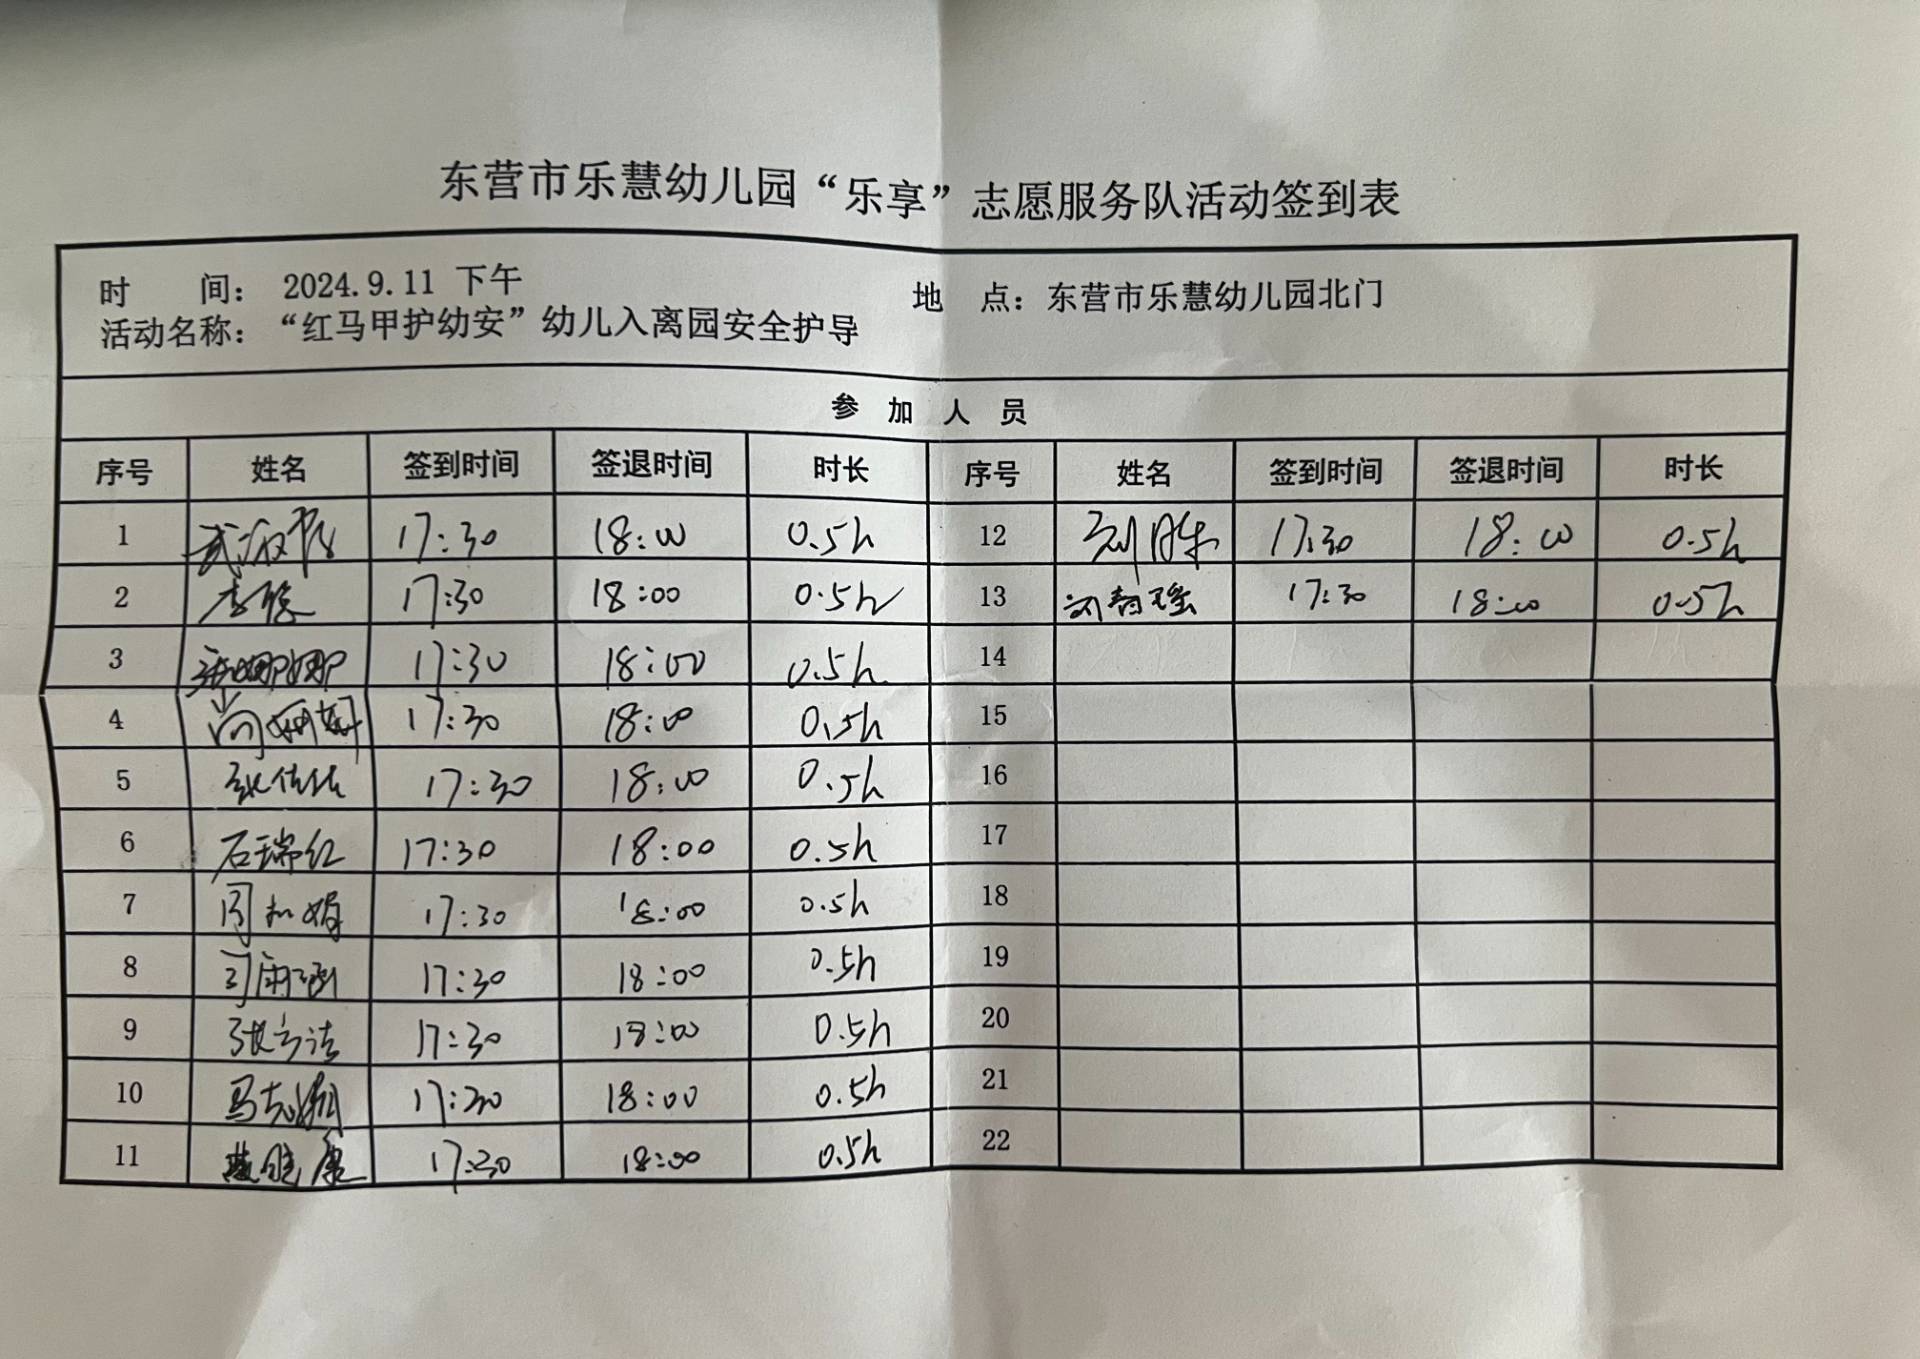 东营市乐慧幼儿园“乐享”志愿服务队活动签到表
时 间： 2024.9.11 下午 地 点：东营市乐慧幼儿园北门
活动名称：“红马甲护幼安”幼儿入离园安全护导
参 加 人 员
序号 姓名 签到时间 签退时间 时长 序号 姓名 签到时间 签退时间 时长
1 17:30 18:00 0.5h 12 17:30 18:00 0.5h
2 17:30 18:00 0.5h 13 17:30 18:00 0.5h
3 17:30 18:00 0.5h 14
4 17:30 18:00 0.5h 15
5 张佳佳 17:30 18:00 0.5h 16
6 石瑞红 17:30 18:00 0.5h 17
7 17:30 18:00 0.5h 18
8 司雨涵 17:30 18:00 0.5h 19
9 17:30 18:00 0.5h 20
10 17:30 18:00 0.5h 21
11 17:30 18:00 0.5h 22